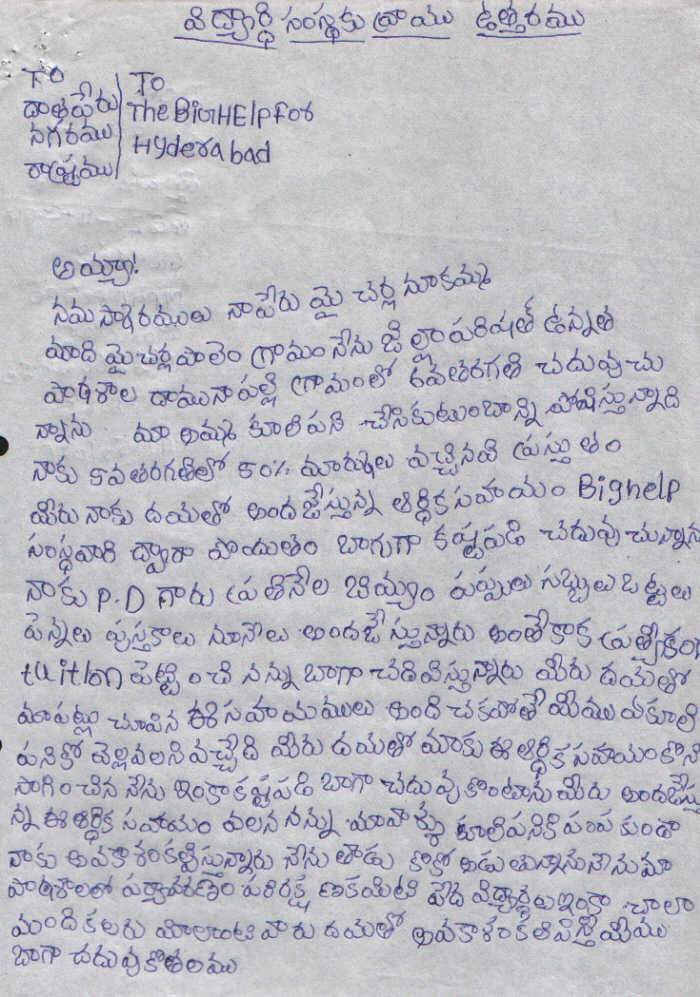 విద్యార్థి సంస్థకు వ్రాయు ఉత్తరము
TO
దాత పేరు
నగరము
రాష్ట్రము
To
The BiGHElp For
Hyderabad
అయ్యా!
నమస్కారములు నా పేరు మైచర్ల నూకమ్మ
మాది మైచర్లపాలెం గ్రామం నేను జిల్లా పరిషత్ ఉన్నత
పాఠశాల దామునాపల్లి గ్రామంలో తరగతి చదువుచు
న్నాను మా అమ్మ కూలి పని చేసి కుటుంబాన్ని పోషిస్తున్నాది
నాకు వతరగతిలో మార్కులు వచ్చినవి ప్రస్తుతం
మీరు నాకు దయతో అందజేస్తున్న ఆర్థిక సహాయం Bighelp
సంస్థవారి ద్వారా పొందుతం బాగుగా కష్టపడి చదువుచున్నాను
నాకు P.D గారు ప్రతినెల బియ్యం పప్పులు సబ్బులు బట్టలు
పెన్నులు పుస్తకాలు నూనెలు అందజేస్తున్నారు అంతేకాక ప్రత్యేకం
tuition పెట్టించి నన్ను బాగా చదివిస్తున్నారు మీరు దయతో
మాపట్లు చూపిన ఈ సహాయములు అందించకపోతే మేము కూలి
పనికో వెల్లవలసివచ్చేది మీరు దయతో మాకు ఈ ఆర్థిక సహాయం కొన
సాగించిన నేను ఇంకా కష్టపడి బాగా చదువుకొంటాను మీరు అందజేస్తు
న్న ఈ ఆర్థిక సహాయం వలన నన్ను మావాళ్ళు కూలిపనికి పంపకుండా
నాకు అవకాశం కల్పిస్తున్నారు నేను కొకో ఆడుతున్నాను మా
పాఠశాలలో పర్యావరణం పరిరక్షణ పేద విద్యార్థులు ఇంకా చాలా
మంది కలరు మీలాంటి వారు దయతో అవకాశం కల్పిస్తే మేము
బాగా చదువుకొతలము